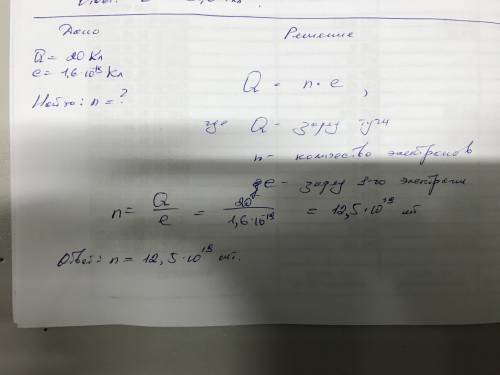 Дано
Решение
Q = 20 Кл
e = 1,6·10⁻¹⁹ Кл
Найти: n = ?
Q = n·e,
где Q - заряд тучи
n - количество электронов
e - заряд 1-го электрона
n = Q/e = 20/1,6·10⁻¹⁹ = 12,5·10¹⁹ шт
Ответ: n = 12,5·10¹⁹ шт.